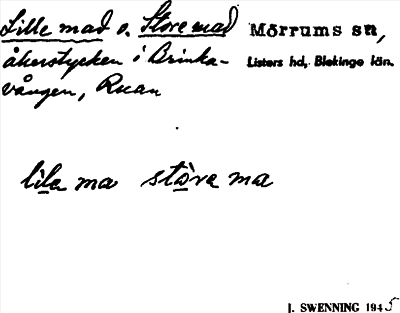 Lille mad o. Store mad
Mörrums sn,
åkerstycken i Brinka-
Listers hd, Blekinge län.
vången, Ruan
lila ma stora ma
J. SWENNING 1945